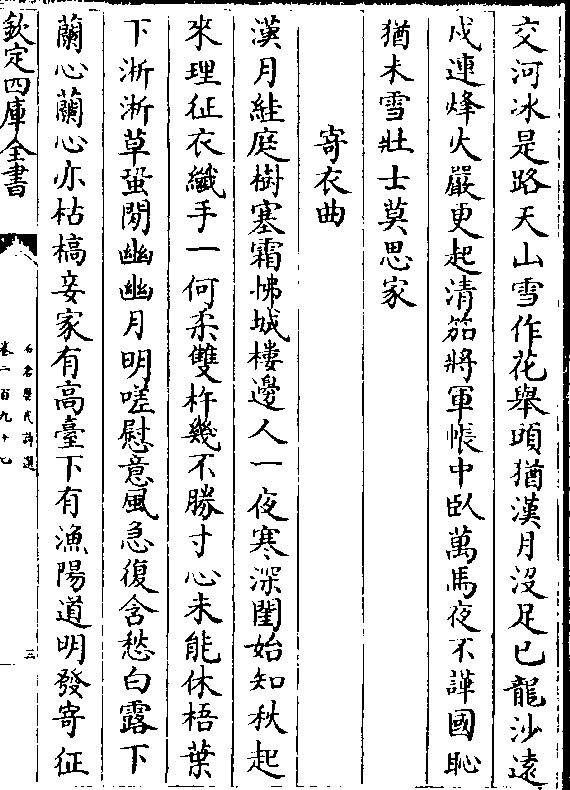 交河冰是路天山雪作花舉頭猶漢月没足已龍沙遠
戍連烽火嚴更起清笳將軍帳中臥萬馬夜不譁國恥
猶未雪壯士莫思家
寄衣曲
漢月絓庭樹塞霜怫城樓邊人一夜寒深閨始知秋起
來理征衣纖手一何柔雙杵幾不勝寸心未能休梧葉
下淅淅草蛩閒幽幽月明嗟慰意風急復含愁白露下
蘭心蘭心亦枯槁妾家有高臺下有漁陽道明發寄征
欽定四庫全書
石倉歷代詩選
卷二百九十七
三